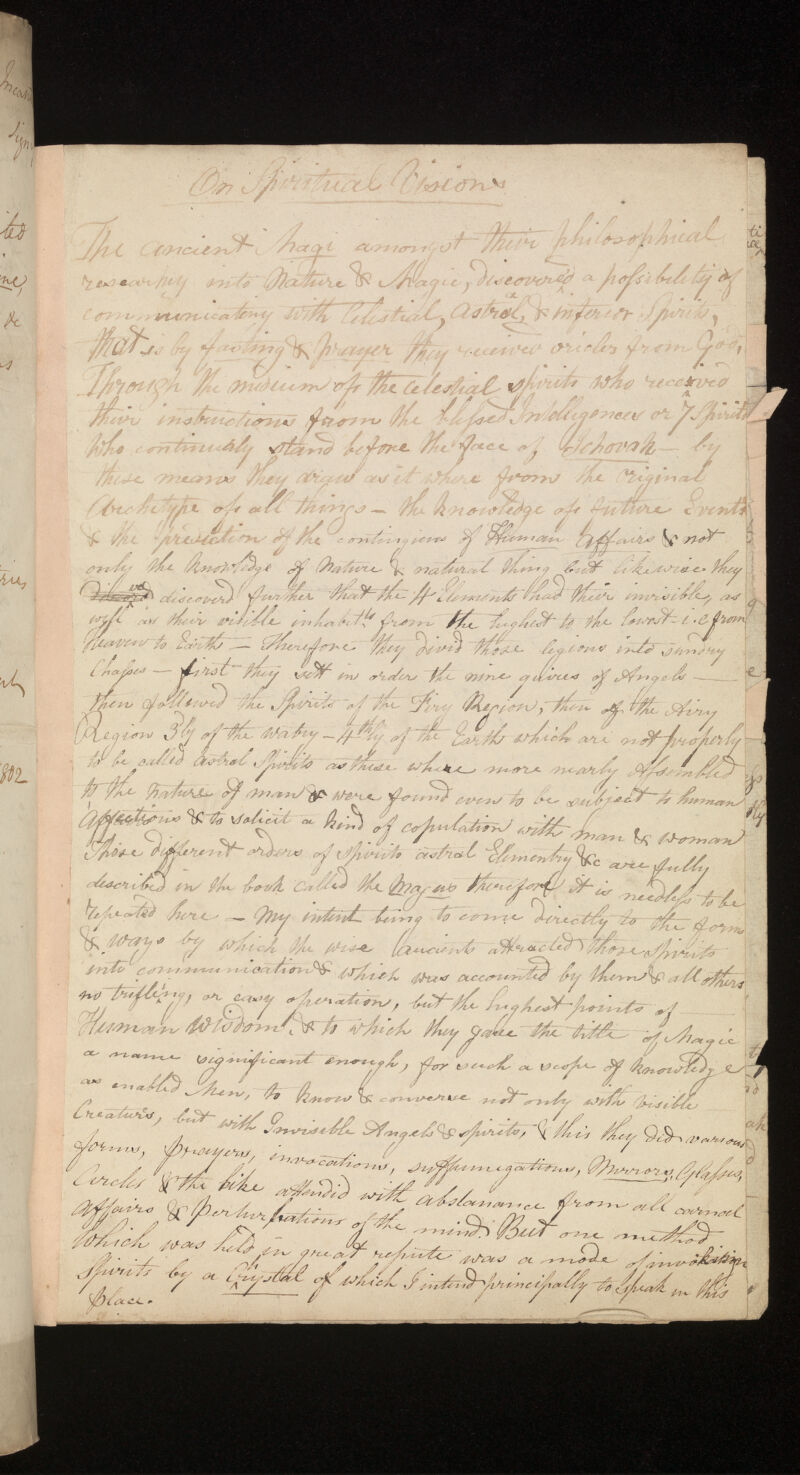 On Spiritual Visions
The ancient Magi amongst their philosophical
researchy into Nature & Magic, discovered a possibility of
communicating with Celestial, Astral, & inferior Spirits,
that is by fasting & prayer they received oricles from God,
Through the midium of the celestial spirits who received
their instructions from the blessed Intelligences or 7 Spirits
who continualy stand before the face of Jehovah — by
these means they draw as it where from the Original
Archetype of all things — the knowledge of future Events
& the prediction of the contingiens of Human affairs & not
only the knowledge of Nature & natural thing but likewise they
discoverd further that the 4 Elements had their invisible, as
well as their visible inhabits from the highest to the lowest i.e from
Heaven to Earth — Therefore they divid those legions into sundry
Classes — first they sett in order the nine quires of Angels —
then followed the Spirits of the Firy Region, then of the Airy
Region 3ly of the watry — 4thly of the Earths which are not properly
to be called astral Spirits as these where more nearly Assembled
to the nature of man & were found even to be subject to human
Affections & to solicit a kind of copulation with man & woman
Those different orders of Spirits astral Elimentry &c are fully
described in the book called the Magus therefore it is needless to be
repeated here — My intent being to come directly to the forms
& ways by which the wise ancients attracted those spirits
into communication & which was accounted by them & all others
no trifling, or easy operation, but the highest points of
Human Wisdom, & to which they gave the title of Magic
a name significant enough, for such a scope of knowledge
as enabled Men, to know & converse not only with visible
Creaturs, but with Invisible Angels & spirits, & this they did various
forms, prayers, invocations, suffumigations, Mirrors, Glasses,
Circles & the like attendid with abstanance from all carnal
affairs & Perturbations of the mind. But one method
which was held in great repute was a mode of invokating
Spirits by a Crystal of which I intend principally to speak in this
place.
1802